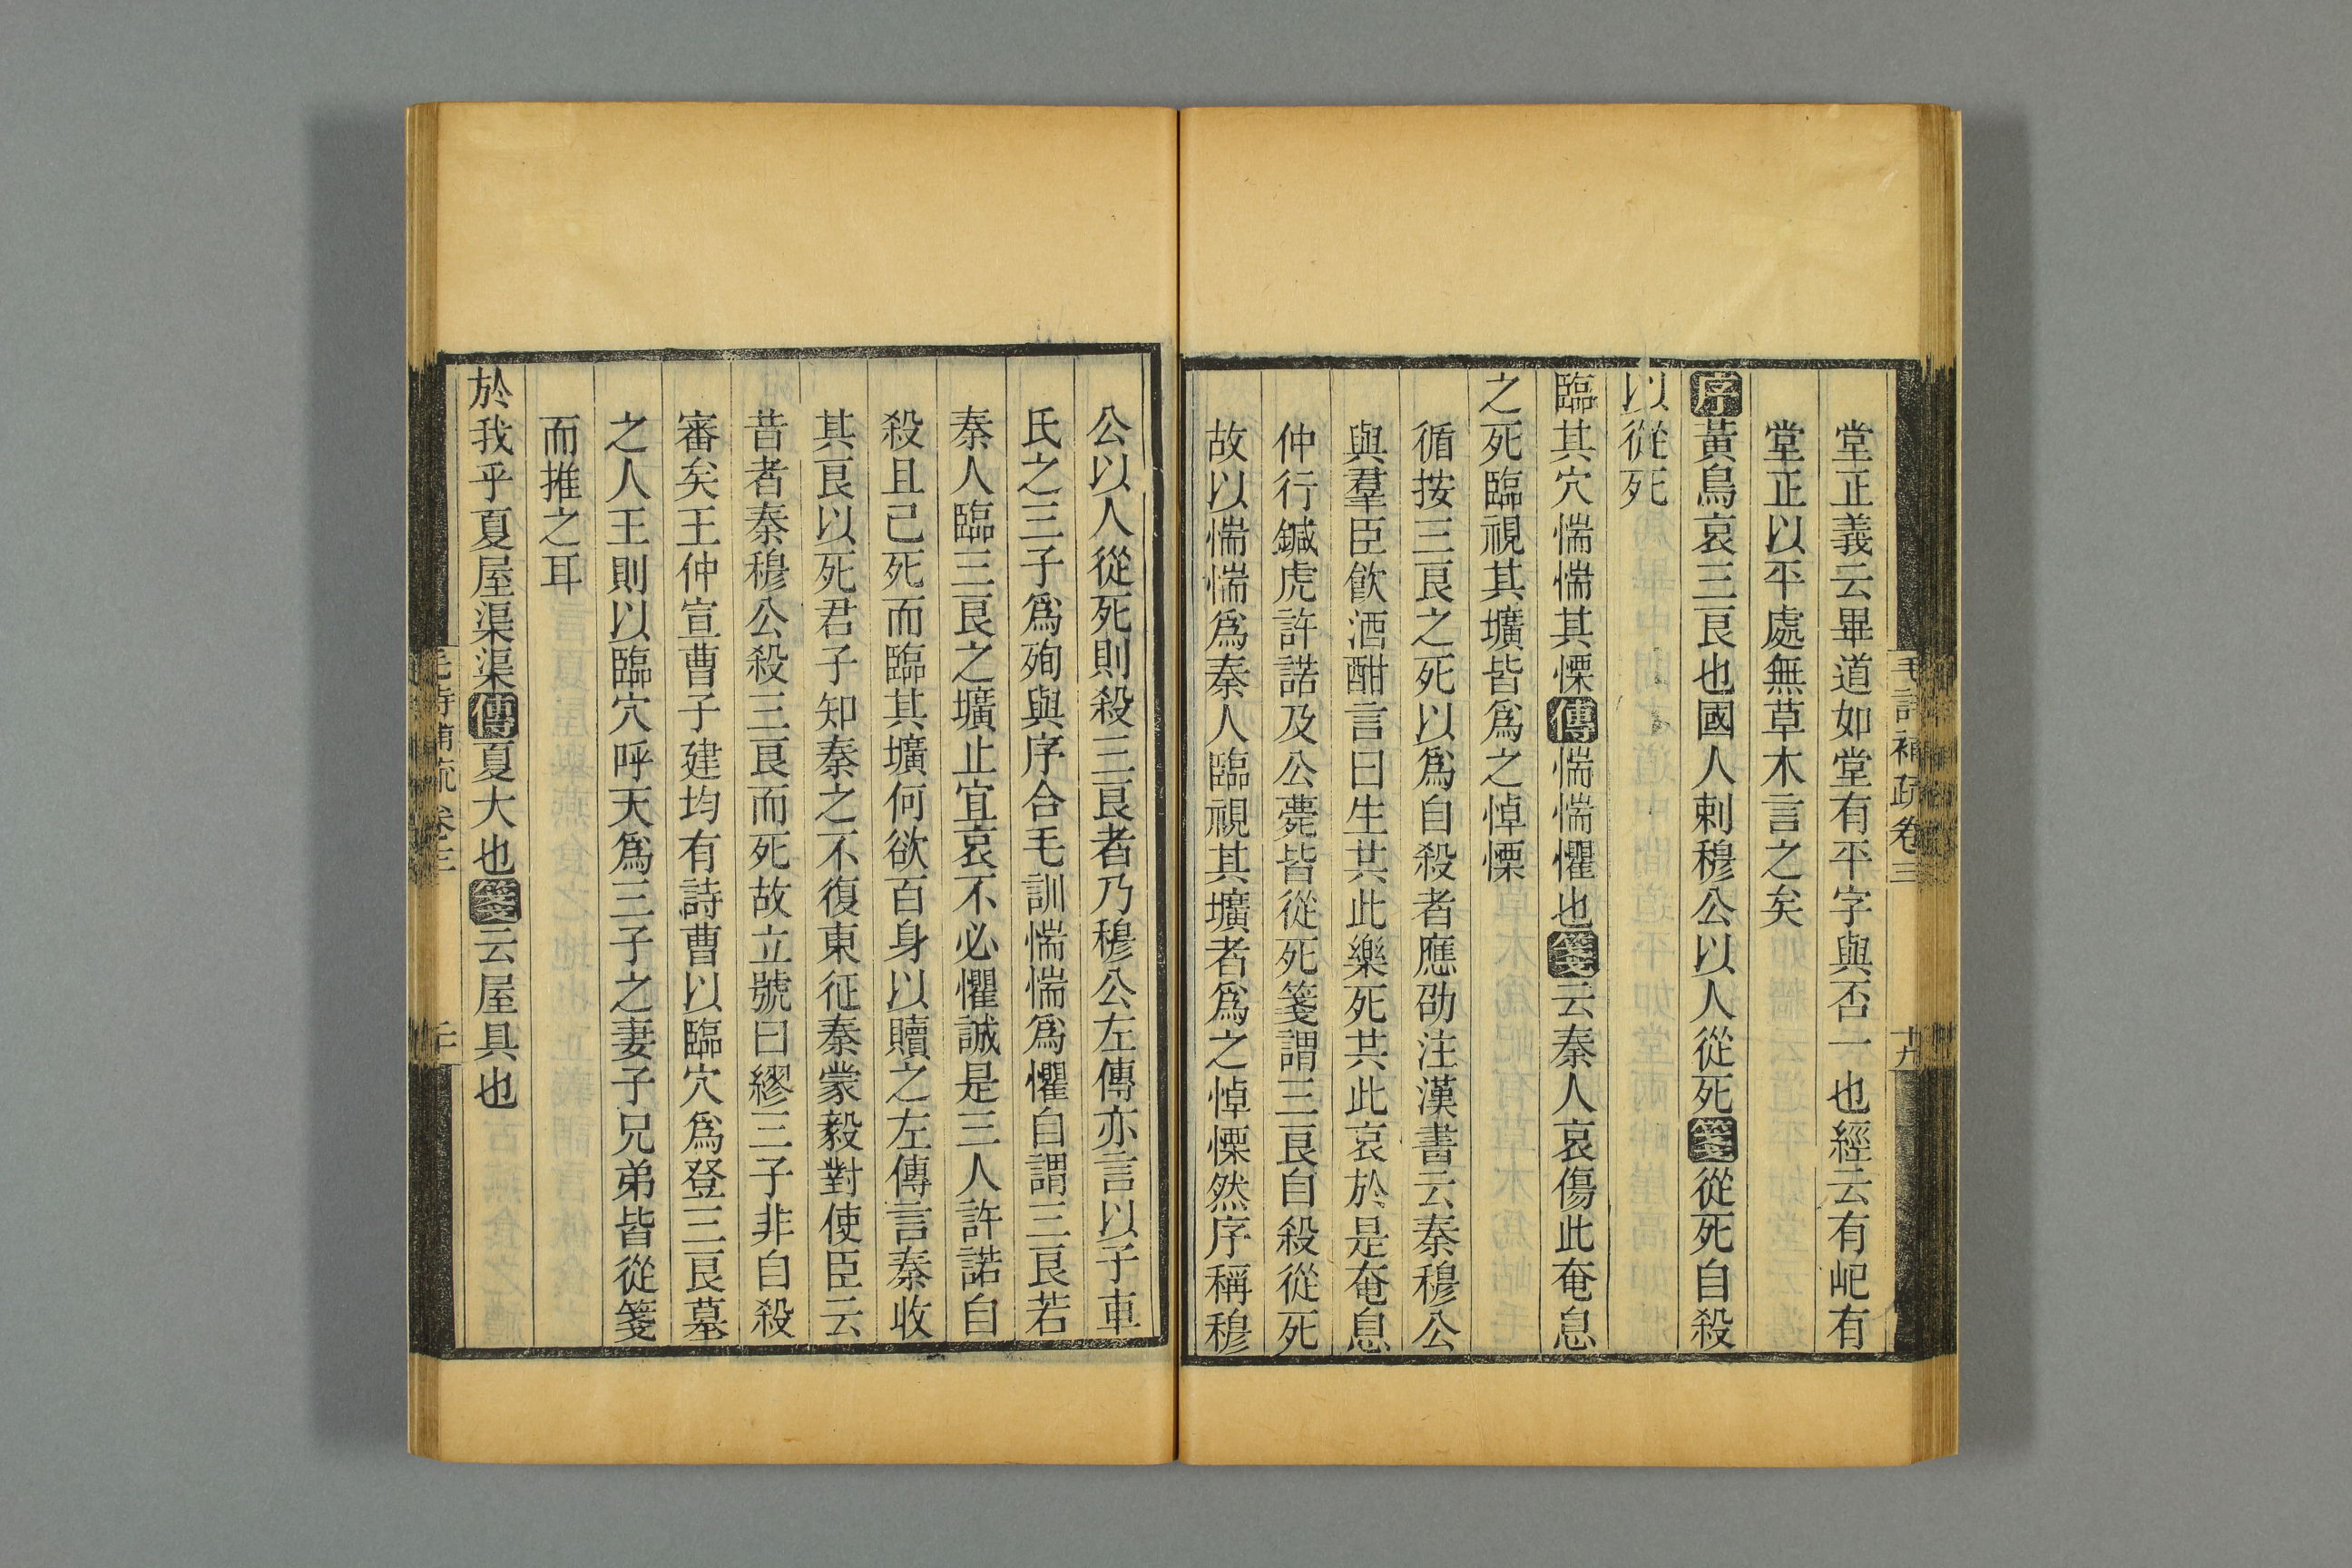 毛詩補疏卷三
十九
堂正義云畢道如堂有平字與否一也經云有屺有
堂正以平處無草木言之矣
序黃鳥哀三良也國人刺穆公以人從死箋從死自殺
以從死
臨其穴惴惴其慄傳惴惴懼也箋云秦人哀傷此奄息
之死臨視其壙皆爲之悼慄
循按三良之死以爲自殺者應劭注漢書云秦穆公
與羣臣飮酒酣言曰生共此樂死共此哀於是奄息
仲行鍼虎許諾及公薨皆從死箋謂三良自殺從死
故以惴惴爲秦人臨視其壙者爲之悼慄然序稱穆
公以人從死則殺三良者乃穆公左傳亦言以子車
氏之三子爲殉與序合毛訓惴惴爲懼自謂三良若
秦人臨三良之壙止宜哀不必懼誠是三人許諾自
殺且已死而臨其壙何欲百身以贖之左傳言秦收
其良以死君子知秦之不復東征秦蒙毅對使臣云
昔者秦穆公殺三良而死故立號曰繆三子非自殺
審矣王仲宣曹子建均有詩曹以臨穴爲登三良墓
之人王則以臨穴呼天爲三子之妻子兄弟皆從箋
而推之耳
於我乎夏屋渠渠傳夏大也箋云屋具也
毛詩補疏卷三
二十